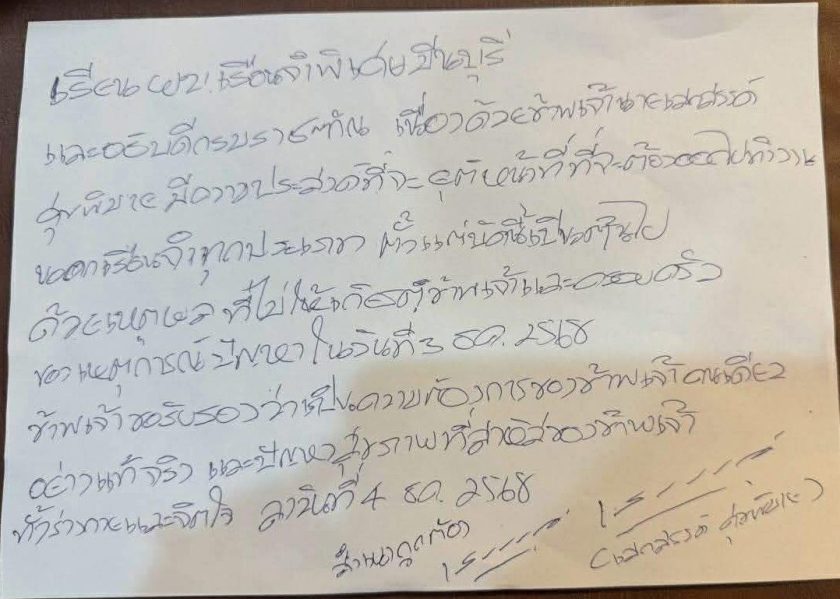 เรียน ผบ.เรือนจำพิเศษมีนบุรี
และอธิบดีกรมราชทัณฑ์ เนื่องด้วยข้าพเจ้านายเสกสรรค์
ศุขพิมาย มีความประสงค์ที่จะยุติหน้าที่ที่จะต้องออกไปทำงาน
นอกเรือนจำทุกประเภท ตั้งแต่บัดนี้เป็นต้นไป
ด้วยเหตุผล ที่ไม่ให้เกิดข้าพเจ้าและครอบครัว
ของเหตุการณ์ปัญหาในวันที่ 3 ธค. 2568
ข้าพเจ้าขอรับรองว่าเป็นความต้องการของข้าพเจ้าคนเดียว
อย่างแท้จริง และปัญหาสุขภาพที่ของข้าพเจ้า
ทั้งร่างกายและจิตใจ ลาวันที่ 4 ธค. 2568
สำเนาถูกต้อง
(เสกสรรค์ ศุขพิมาย)